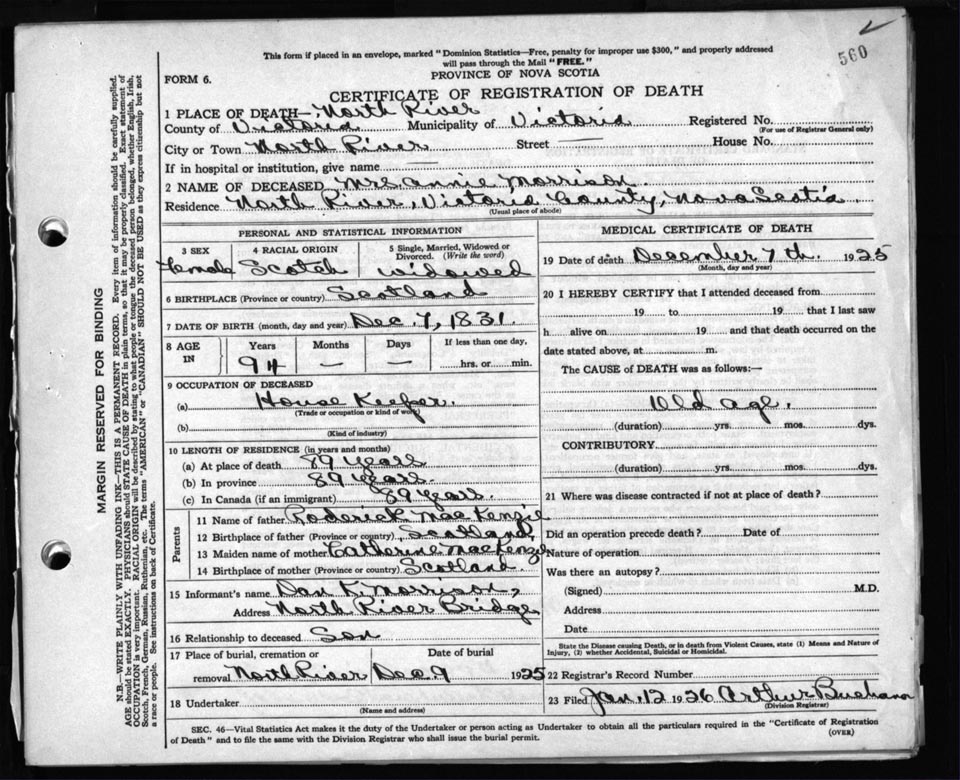 560
This form if placed in an envelope, marked "Dominion Statistics—Free, penalty for improper use $300," and properly addressed
will pass through the Mail "FREE."
PROVINCE OF NOVA SCOTIA
FORM 6.
CERTIFICATE OF REGISTRATION OF DEATH
1 PLACE OF DEATH— North River
County of Victoria Municipality of Victoria Registered No.
(For use of Registrar General only)
City or Town North River Street House No.
If in hospital or institution, give name
2 NAME OF DECEASED Mrs Annie Morrison.
Residence North River, Victoria County, Nova Scotia
(Usual place of abode)
PERSONAL AND STATISTICAL INFORMATION
3 SEX 4 RACIAL ORIGIN 5 Single, Married, Widowed or
Divorced. (Write the word)
Female Scotch widowed
6 BIRTHPLACE (Province or country) Scotland
7 DATE OF BIRTH (month, day and year) Dec. 7, 1831.
8 AGE IN Years Months Days If less than one day,
94 — — hrs. or min.
9 OCCUPATION OF DECEASED
(a) House Keeper.
(Trade or occupation or kind of work)
(b)
(Kind of industry)
10 LENGTH OF RESIDENCE (in years and months)
(a) At place of death 89 years
(b) In province 89 years.
(c) In Canada (if an immigrant) 89 years.
Parents
11 Name of father Roderick MacKenzie
12 Birthplace of father (Province or country) Scotland,
13 Maiden name of mother Catherine MacKenzie
14 Birthplace of mother (Province or country) Scotland.
15 Informant's name Dan K. Morrison,
Address North River Bridge
16 Relationship to deceased Son
17 Place of burial, cremation or Date of burial
removal North River Dec 9 1925
18 Undertaker
(Name and address)
MEDICAL CERTIFICATE OF DEATH
19 Date of death December 7th. 1925
(Month, day and year)
20 I HEREBY CERTIFY that I attended deceased from
19 to 19 that I last saw
h alive on 19 and that death occurred on the
date stated above, at m.
The CAUSE of DEATH was as follows:—
Old age.
(duration) yrs. mos. dys.
CONTRIBUTORY
(duration) yrs. mos. dys.
21 Where was disease contracted if not at place of death?
Did an operation precede death? Date of
Nature of operation
Was there an autopsy?
(Signed) M.D.
Address
Date
State the Disease causing Death, or in death from Violent Causes, state (1) Means and Nature of
Injury, (2) whether Accidental, Suicidal or Homicidal.
22 Registrar's Record Number
23 Filed Jan. 12 1926 Arthur Buchanan
(Division Registrar)
SEC. 46—Vital Statistics Act makes it the duty of the Undertaker or person acting as Undertaker to obtain all the particulars required in the "Certificate of Registration
of Death" and to file the same with the Division Registrar who shall issue the burial permit.
(OVER)
MARGIN RESERVED FOR BINDING
N.B.—WRITE PLAINLY WITH UNFADING INK—THIS IS A PERMANENT RECORD. Every item of information should be carefully supplied.
AGE should be stated EXACTLY. PHYSICIANS should STATE CAUSE OF DEATH in plain terms, so that it may be properly classified. Exact statement of
OCCUPATION is very important. RACIAL ORIGIN will be described by stating to what people or tongue the deceased person belonged, whether English, Irish,
Scotch, French, German, Russian, Ruthenian, etc. The terms "AMERICAN" or "CANADIAN" SHOULD NOT BE USED as they express citizenship but not
a race or people. See instructions on back of Certificate.